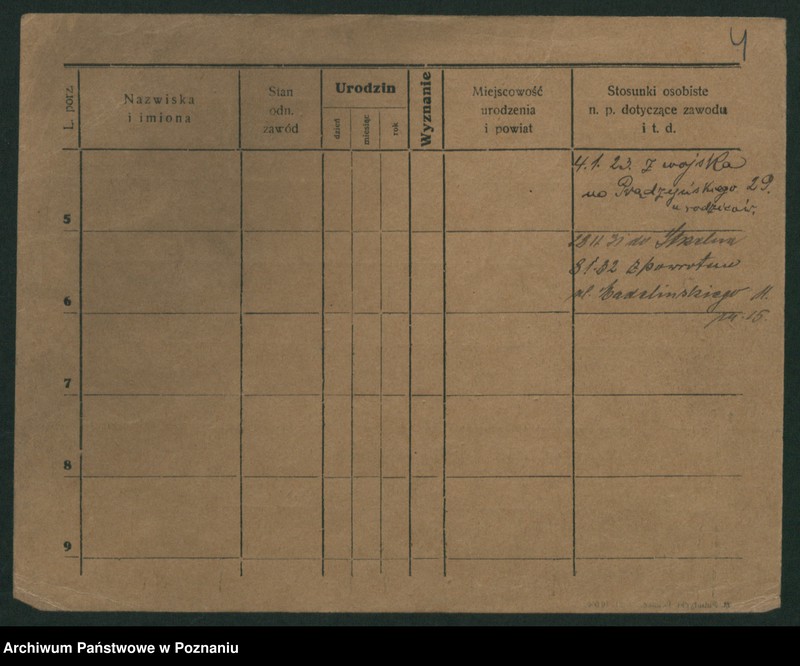 L. porz.
Nazwiska
i imiona
Stan
odn.
zawód
Urodzin
dzień
miesiąc
rok
Wyznanie
Miejscowość
urodzenia
i powiat
Stosunki osobiste
n. p. dotyczące zawodu
i t. d.
4.1.23. z wojska
na Prądzyńskiego 29.
u rodziców.
5
28.11.31 do
8.1.32 z powrotem
6
pl. 11.
m. 15.
7
8
9
Archiwum Państwowe w Poznaniu